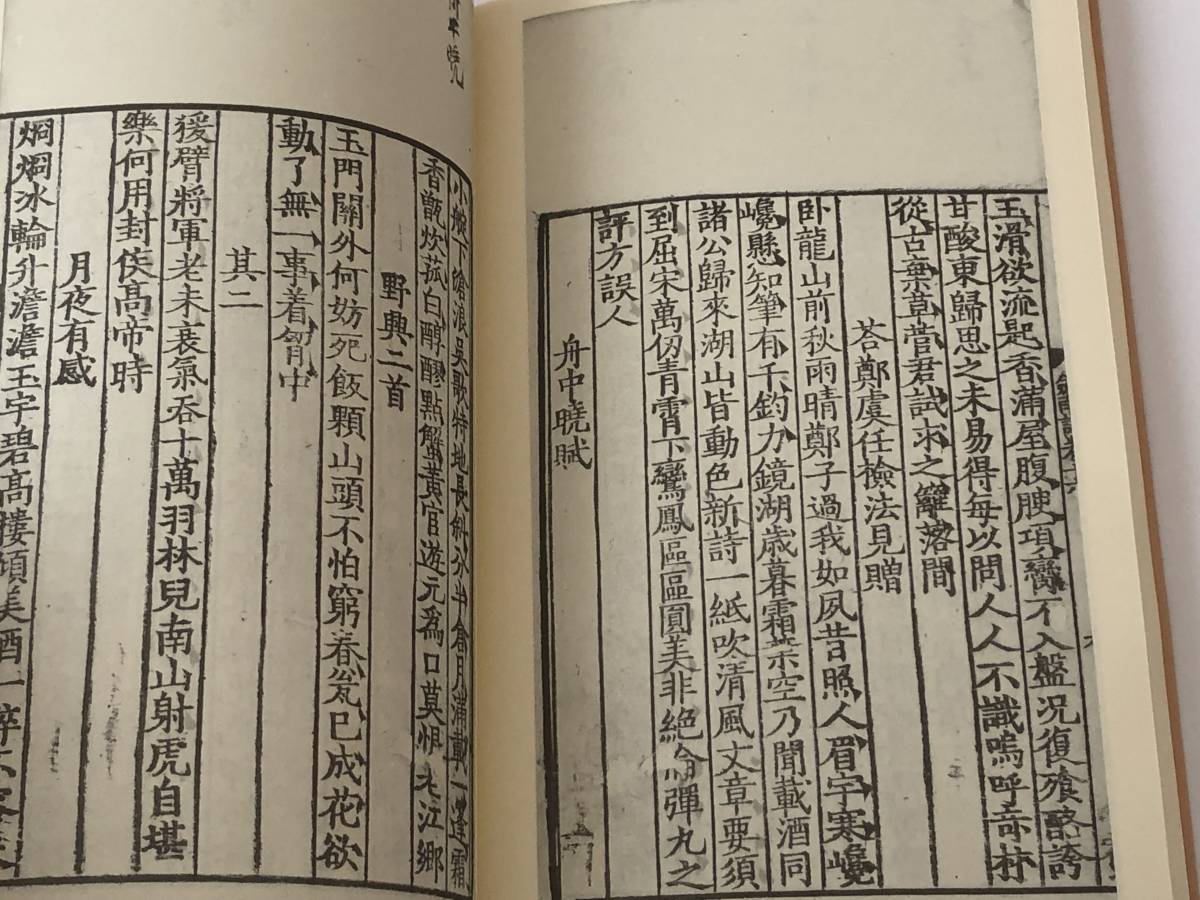 玉滑欲流匙香滿屋腹腴項臠不入盤况復飱酪誇
甘酸東歸思之未易得每以問人人不識嗚呼奇材
從古棄草菅君試求之籬落間
荅鄭虞任檢法見贈
卧龍山前秋雨晴鄭子過我如夙昔照人眉宇寒巉
巉懸知筆有千鈞力鏡湖歳暮霜葉空乃聞載酒同
諸公歸來湖山皆動色新詩一紙吹清風文章要須
到屈宋萬仞青霄下鸞鳳區區圓美非絶倫彈丸之
評方誤人
舟中曉賦
小艇下滄浪吳歌特地長斜分半倉月滿載一逢霜
香甑炊菰白醇醪點蟹黃官遊元爲口莫恨老江郷
野興二首
玉門關外何妨死飯顆山頭不怕窮春瓮已成花欲
動了無一事着胷中
其二
猨臂將軍老未衰氣吞十萬羽林兒南山射虎自堪
樂何用封侯髙帝時
月夜有感
烱烱冰輪升澹澹玉宇碧髙樓頃美酒一醉